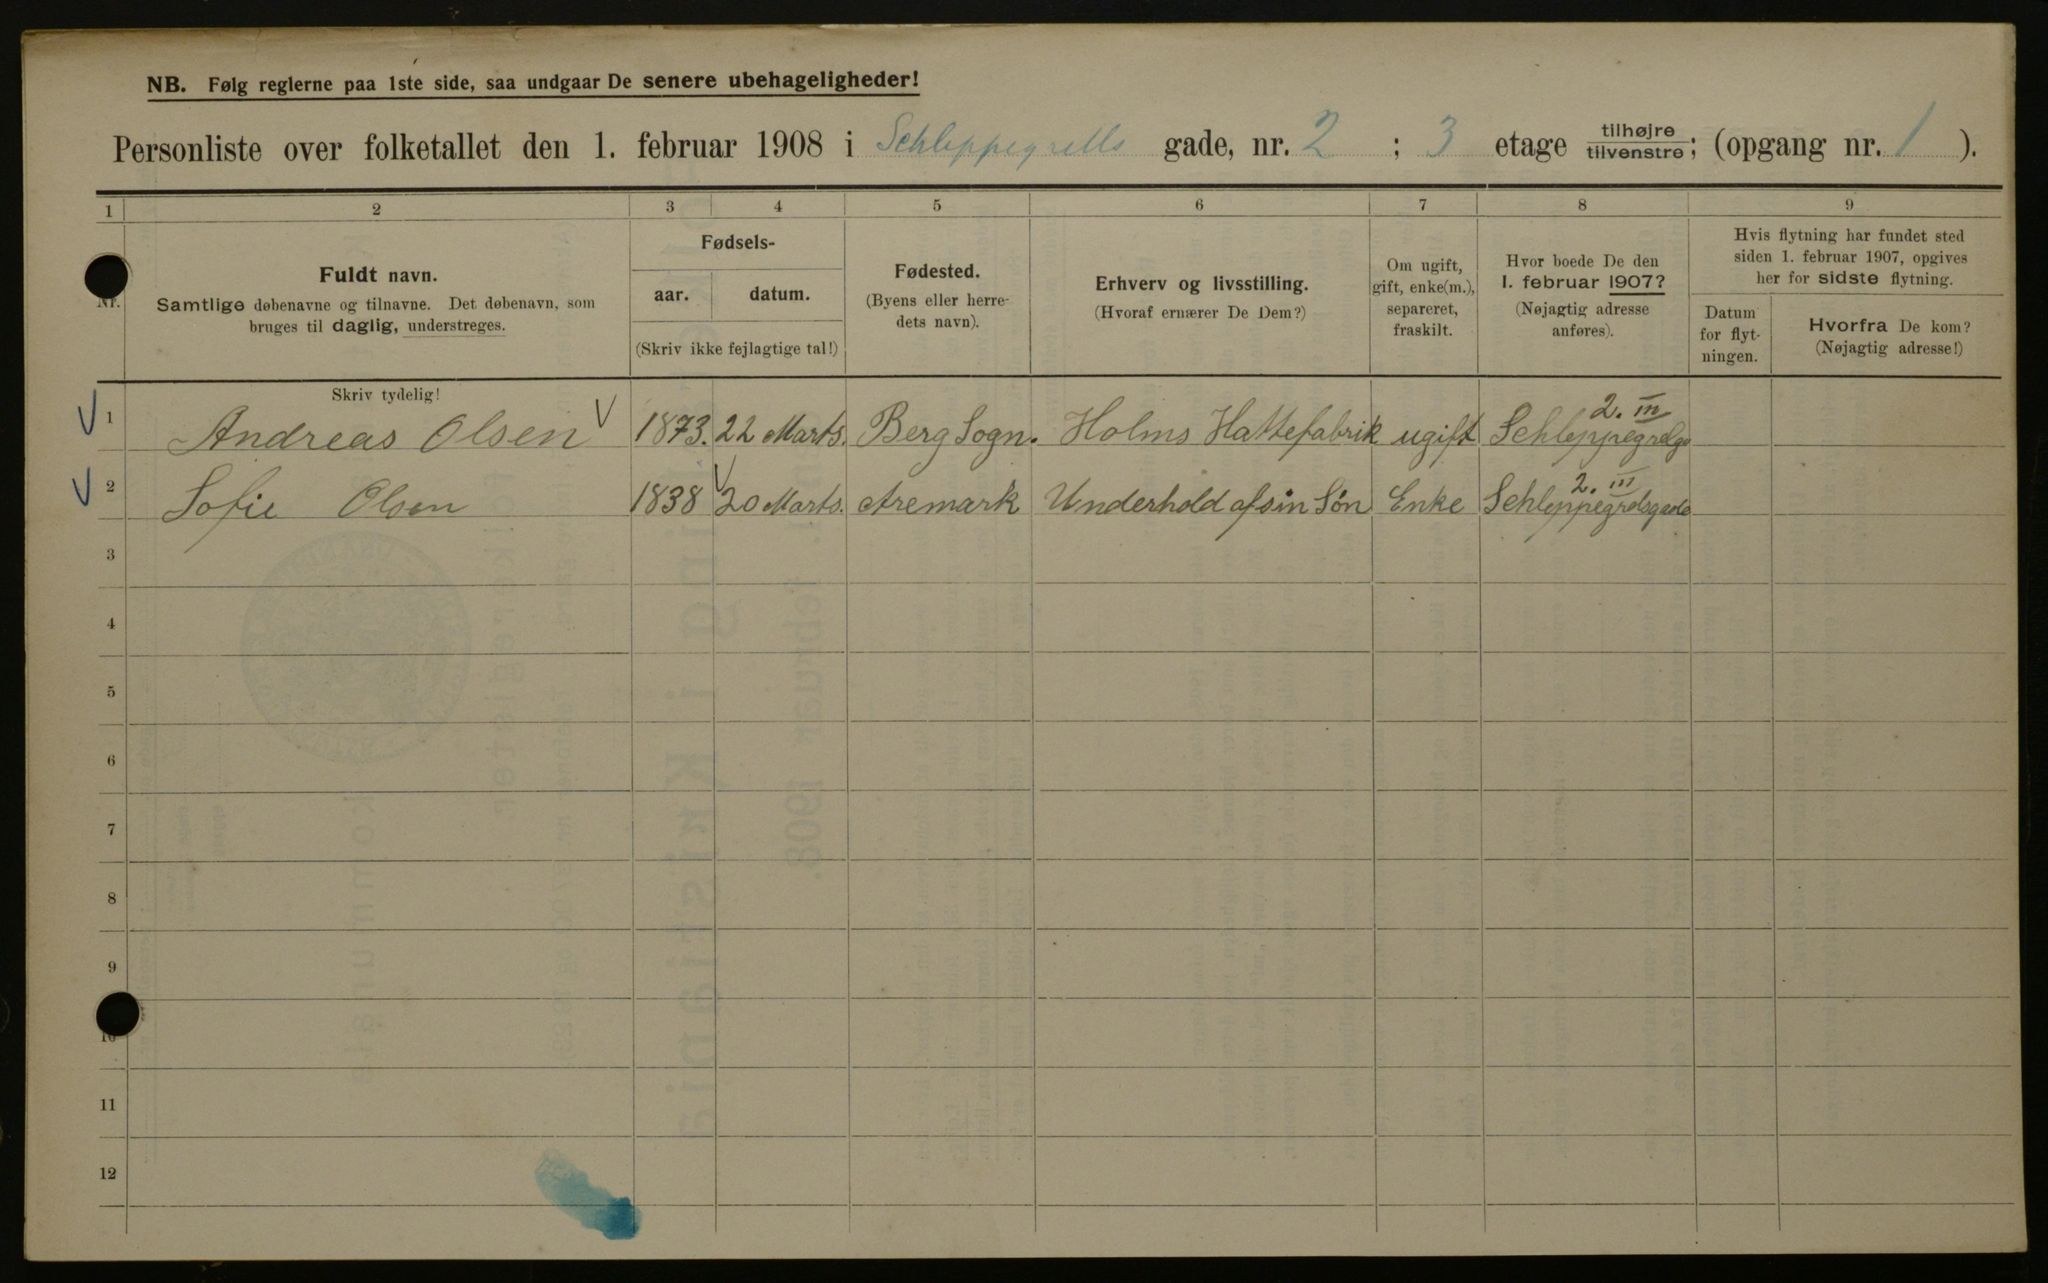 NB. Følg reglerne paa 1ste side, saa undgaar De senere ubehageligheder!
Personliste over folketallet den 1. februar 1908 i Schleppegrells gade, nr. 2 ; 3 etage tilhøjre/tilvenstre; (opgang nr. 1 ).
1 2 3 4 5 6 7 8 9
Nr.
Fuldt navn.
Samtlige døbenavne og tilnavne. Det døbenavn, som
bruges til daglig, understreges.
Fødsels-
aar. datum.
(Skriv ikke fejlagtige tal!)
Fødested.
(Byens eller herre-
dets navn).
Erhverv og livsstilling.
(Hvoraf ernærer De Dem?)
Om ugift,
gift, enke(m.),
separeret,
fraskilt.
Hvor boede De den
1. februar 1907?
(Nøjagtig adresse
anføres).
Hvis flytning har fundet sted
siden 1. februar 1907, opgives
her for sidste flytning.
Datum
for flyt-
ningen.
Hvorfra De kom?
(Nøjagtig adresse!)
Skriv tydelig!
2. III
1 Andreas Olsen 1873. 22 Marts. Berg Sogn. Holms Hattefabrik ugift Schleppegrelg
2. III
2 Sofie Olsen 1838 20 Marts. Aremark Underhold af sin Søn Enke Schleppegrelsgade
3
4
5
6
7
8
9
10
11
12